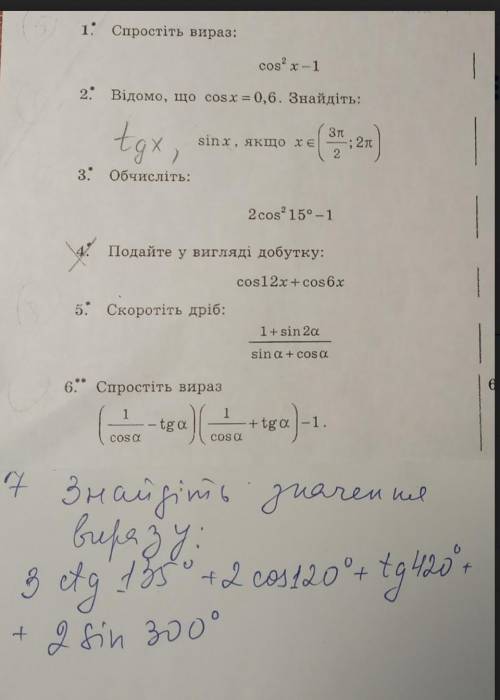 1.• Спростіть вираз:
cos² x − 1
2.• Відомо, що cos x = 0,6. Знайдіть:
tg x, sin x, якщо x ∈ (3π/2; 2π)
3.• Обчисліть:
2cos² 15° − 1
4.• Подайте у вигляді добутку:
cos12x + cos6x
5.• Скоротіть дріб:
1 + sin 2α
sin α + cos α
6.•• Спростіть вираз
(1/cos α − tg α)(1/cos α + tg α) − 1.
6
7 Знайдіть значення
виразу:
3 ctg 135° + 2 cos 120° + tg 420° +
+ 2 sin 300°